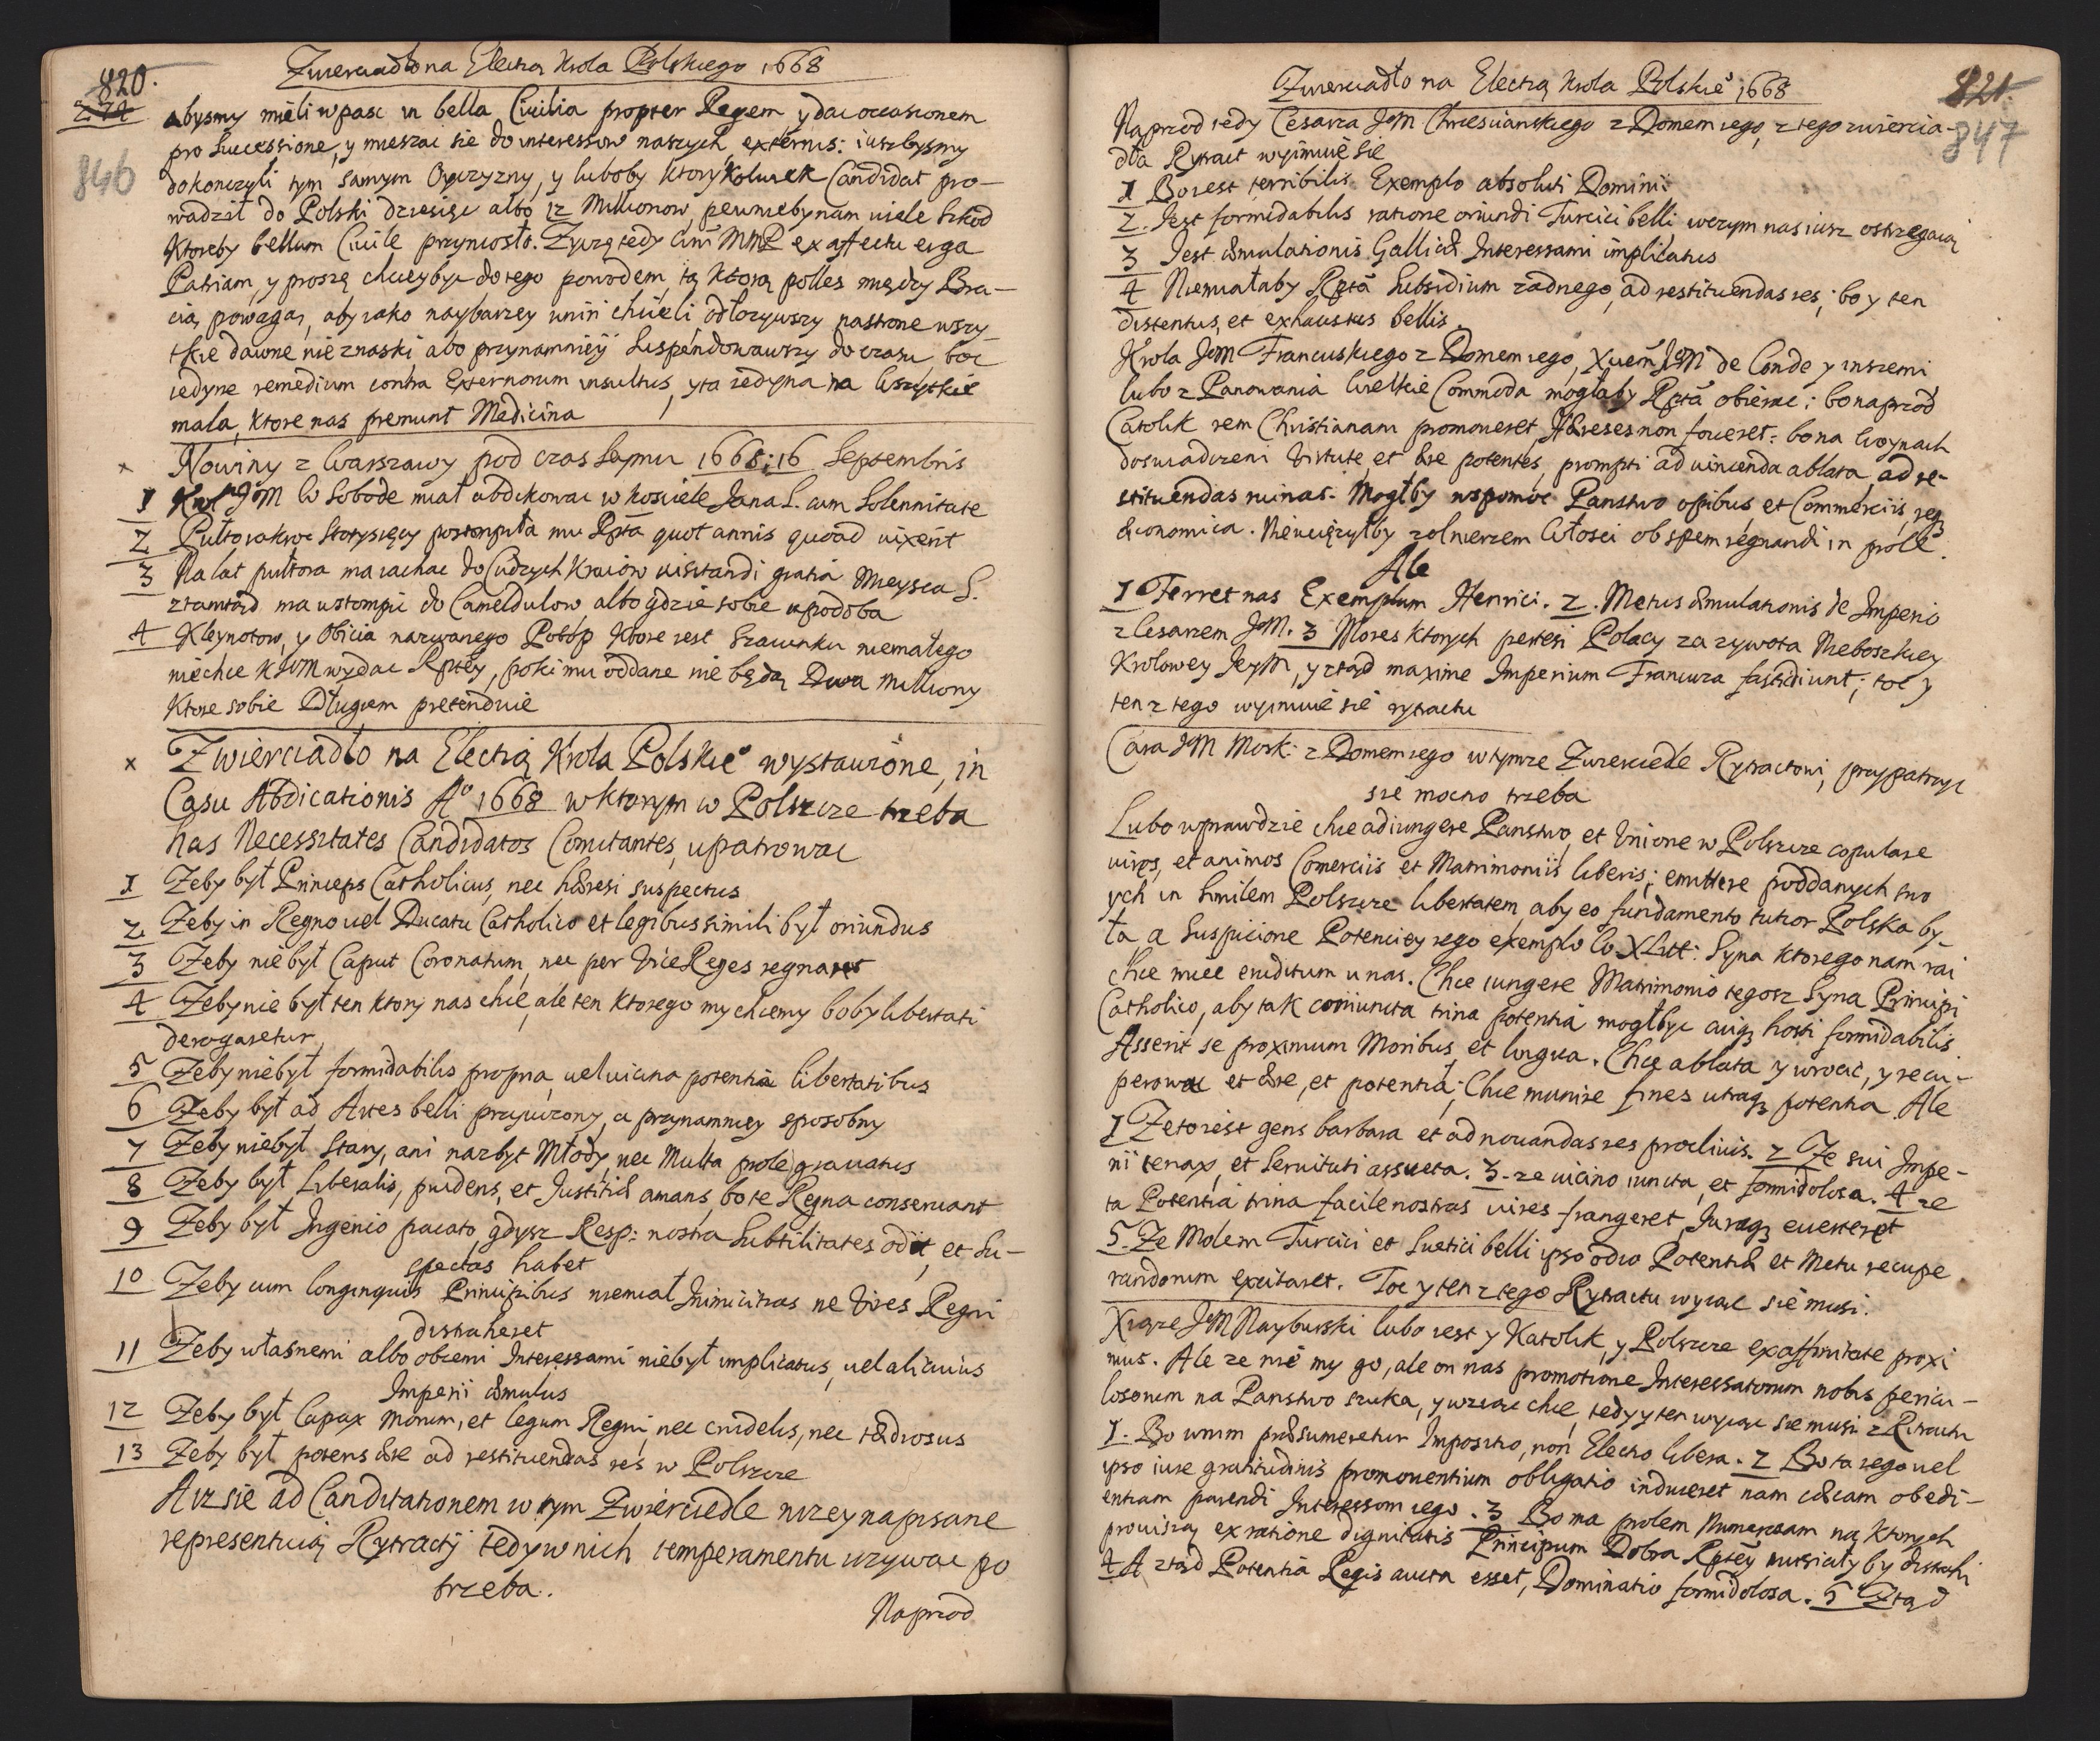 820.
274
846
Zwierciadło na Electią Krola Polskiego 1668
abysmy mieli wpasc in bella Civilia propter Regem y dac occasionem
pro Successione, y mieszac sie do interessow naszych externis: iuszbysmy
dokonczyli tym samym Oyczyzny, y luboby ktory kolwiek Candidat pro-
wadził do Polski dziesięc albo 12 Millionow, pewnieby nam wiele szkod
ktoreby bellum Civile przyniosło. Zyczę tedy WM MMP ex affectu erga
Patriam, y proszę chciey byc do tego powodem, tą ktorą polles między Bra-
cią powagą, aby iako naybarzey uniri chcieli odłozywszy na strone wszy-
tkie dawne nieznaski abo przynamniey suspendowawszy do czasu boc
iedyne remedium contra Externorum insultus, y ta iedyna na wszytkie
mala, ktore nas premunt Medicina
x Nowiny z Warszawy pod czas Seymu 1668: 16 Septembris
1 Krol JoM w Sobote miał abdikowac w kosciele Jana S. cum Solennitate
2 Pułtorakroc Stotysięcy postompiła mu Rptā quot annis quoad vixerit
3 Na lat pułtora ma iachac do Cudzych Kraiow visitandi gratiâ Mieysca S.
ztamtąd ma ustompic do Cameldulow albo gdzie sobie upodoba
4 Kleynotow, y Obicia nazwanego Potop ktore iest szacunku niemałego
niechce KJoM wydac Rptey, poki mu oddane nie będą Dwa Milliony
ktore sobie Długiem pretenduie
x Zwierciadło na Electią Krola Polskieo wystawione, in
Casu Abdicationis Ao 1668 w ktorym w Polszcze trzeba
has Necessitates Candidatos Comitantes, upatrowac
1 Zeby był Princeps Catholicus, nec hæresi suspectus
2 Zeby in Regno vel Ducatu Catholico et legibus simili był oriundus
3 Zeby nie był Caput Coronatum, nec per Vice Reges regnaret
4 Zeby nie był ten ktory nas chce, ale ten ktorego my chcemy boby libertati
derogaretur
5 Zeby nie był formidabilis propria, vel vicina potentiâ libertatibus
6 Zeby był ad Artes belli przyuczony, a przynamniey sposobny
7 Zeby nie był Stary, ani nazbyt Młody, nec Multa prole gravatus
8 Zeby był Liberalis, prudens, et Justitiæ amans, bo te Regna conservant
9 Zeby był Ingenio pacato, gdysz Resp: nostra Subtilitates odit, et Su-
spectas habet
10 Zeby cum longinquis Principibus niemiał Inimicitias ne Vires Regni
distraheret
11 Zeby własnemi albo obcemi Interessami nie był implicatus, vel alicuius
Imperii æmulus
12 Zeby był Capax Morum, et legum Regni, nec crudelis, nec tædiosus
13 Zeby był potens ære ad restituendas res w Polszcze
A iz sie ad Canditationem w tym Zwierciedle nizey napisane
representuią Rytracty tedy w nich temperamentu uzywac po
trzeba.
Naprzod
821.
847
Zwierciadło na Electią Krola Polskieo 1668
Naprzod tedy Cesarza JoM Chrzescianskiego z Domem iego, z tego zwiercia-
dła Rytract wyimuie sie
1 Bo iest terribilis Exemplo absoluti Dominii
2. Jest formidabilis ratione oriundi Turcici belli w czym nas iusz ostrzegaią
3 Jest æmulationis Gallicæ Interessami implicatus
4 Niemiałaby Rptā Subsidium zadnego, ad restituendas res; bo y ten
distentus, et exhaustus bellis.
Krola JoM Francuskiego z Domem iego, Xciem JoM de Conde y inszemi
lubo z Panowania wielkie Commoda mogłaby Rptā obierac; bo naprzod
Catolik rem Christianam promoveret, Hæreses non foveret: bo na Woynach
doswiadczeni Virtute, et ære potentes, prompti ad vincenda ablata, ad re-
stituendas ruinas. Mogłby wspomoc Panstwo opibus, et Commerciis, reqʒ
œconomica. Nieuciązyłby zolnierzem Włosci ob spem regnandi in prole.
Ale
1 Terret nas Exemplum Henrici. 2. Metus æmulationis de Imperio
z Cesarzem JoM. 3 Mores ktorych pertesi Polacy za zywota Nieboszkiey
Krolowey JeyM, y ztąd maxime Imperium Francuza fastidiunt; toc y
ten z tego wyimuie sie rytractu
Cara JoM Mosk: z Domem iego w tymze Zwierciedle Rytractowi, przypatrzyc
sie mocno trzeba
Lubo wprawdzie chce adiungere Panstwo, et Unione w Polszcze copulare
vires, et animos Comerciis et Matrimoniis liberis; emittere poddanych swo
ych in similem Polszcze libertatem, aby eo fundamento tutior Polska by-
ła a Suspicione Potenciey iego exemplo W. X Litt: Syna ktorego nam rai
chce miec eruditum u nas. Chce iungere Matrimonio tegosz Syna Principi
Catholico, aby tak coniuncta trina potentiâ mogł byc cuiqʒ hosti formidabilis.
Asserit se proximum Moribus, et lingua. Chce ablata y wrocic, y recu-
perowac et ære, et potentiâ; Chce munire fines utraqʒ potentia. Ale
1 Ze to iest gens barbara et ad novandas res proclivis. 2 Ze sui Impe-
rii tenax, et Servituti assueta. 3. ze vicino iuncta, et formidolosa. 4 ze
ta Potentiâ trina facile nostras vires frangeret, Juraqʒ everteret
5. Ze Molem Turcici et Suetici belli ipso odio Potentiæ et Metu recupe
randorum excitaret. Toc y ten z tego Rytractu wyiąc sie musi.
Xiąze JoM Nayburski lubo iest y Katolik, y Polszcze ex affinitate proxi
mus. Ale ze nie my go, ale on nas promotione Interessatorum nobis pericu-
losorum na Panstwo szuka, y wziąc chce, tedy y ten wyiąc sie musi z Ritractu
1. Bo unim præsumeretur Impositio, non Electio libera. 2 Bo ta iego vel
ipso iure gratitudinis promoventium obligatio induceret nam cæcam obedi-
entiam parendi Interessom iego. 3 Bo ma prolem Numerosam na ktorych
prowizią ex ratione dignitatis Principum Dobra Rptey musiały by distrahi
4 A ztąd Potentiâ Regis aucta esset, Dominatio formidolosa. 5 Ztąd